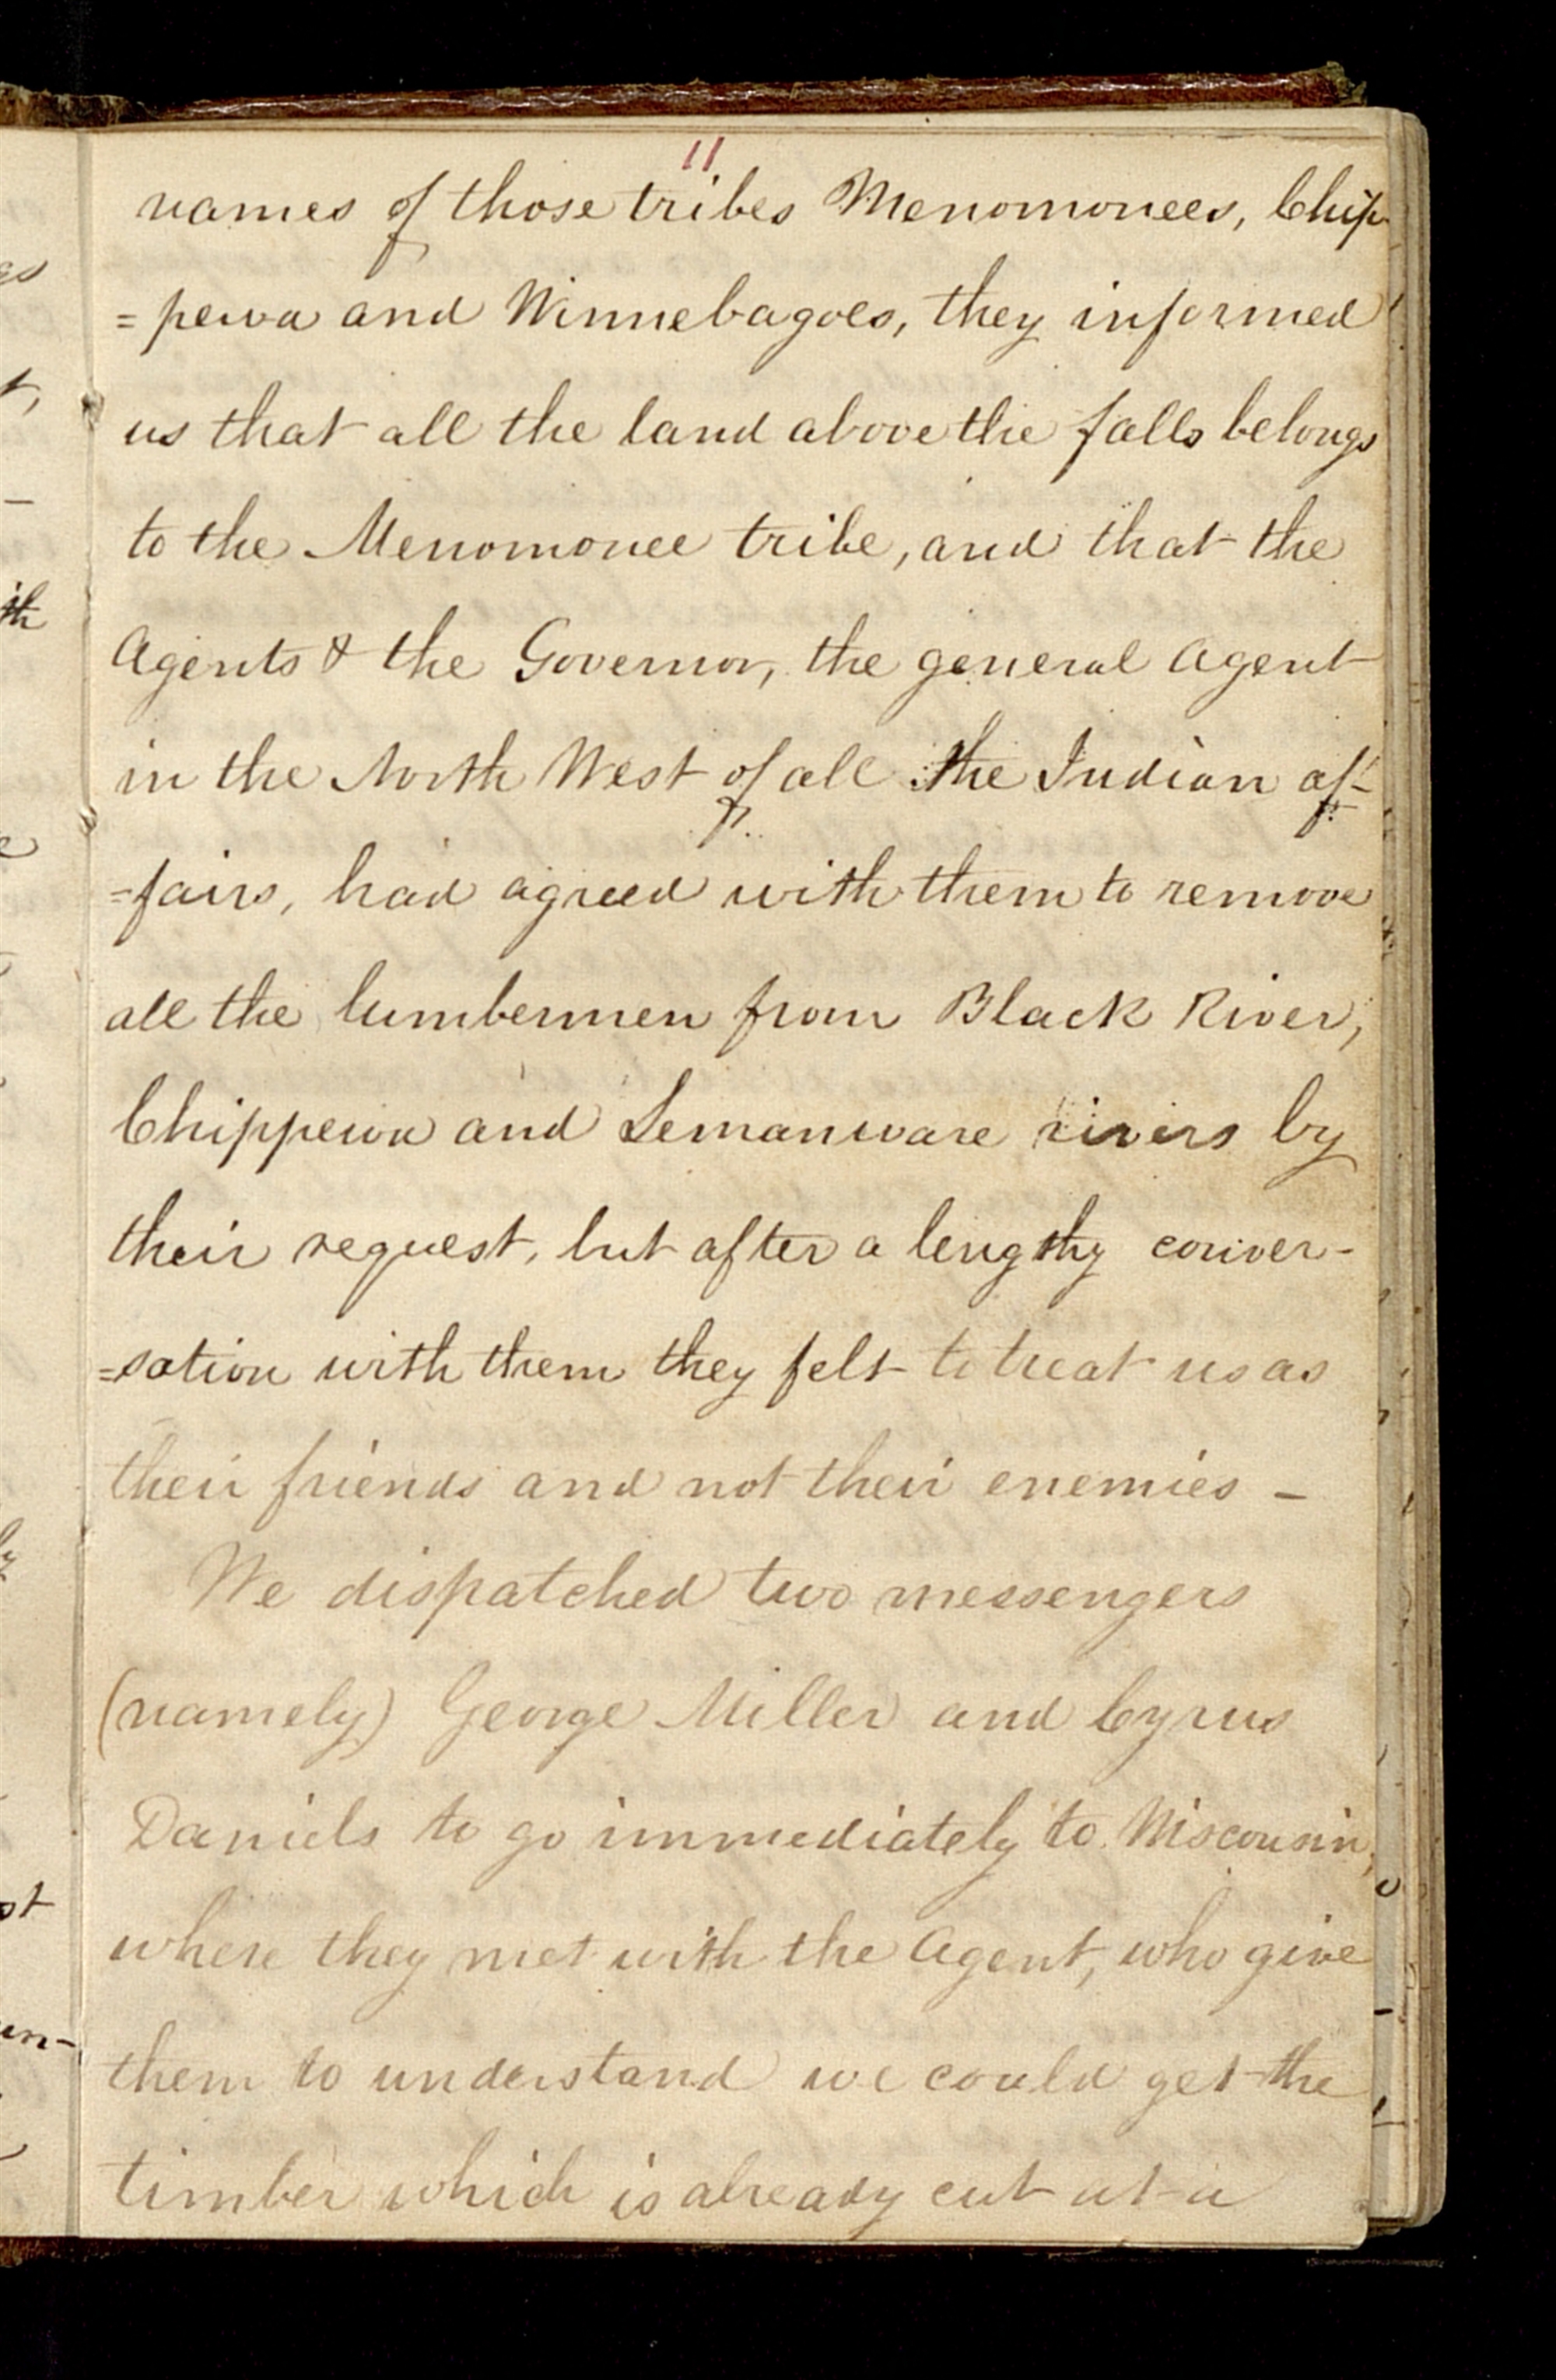 11
names of those tribes Menomonees, Chip
=pewa and Winnebagoes, they informed
us that all the land above the falls belongs
to the Menomonee tribe, and that the
Agents & the Governor, the general Agent
in the North West of all the Indian af-
=fairs, had agreed with them to remove
all the lumbermen from Black River,
Chippewa and Lemanware rivers by
their request, but after a lengthy conver-
=sation with them they felt to treat us as
their friends and not their enemies –
We dispatched two messengers
(namely) George Miller and Cyrus
Daniels to go immediately to Wisconsin,
where they met with the Agent, who give
them to understand we could get the
timber which is already cut at a